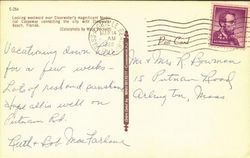 S-264
Looking westward over Clearwater's magnificent Memorial Causeway connecting the city with Clearwater Beach, Florida.
Post Card
Vacationing down here
for a few weeks -
Lots of rest and sunshine
Hope all is well on
Putnam Rd.
Ruth & Bob MacFarlane
Mr & Mrs R Bowman
15 Putnam Road
Arlington, Mass